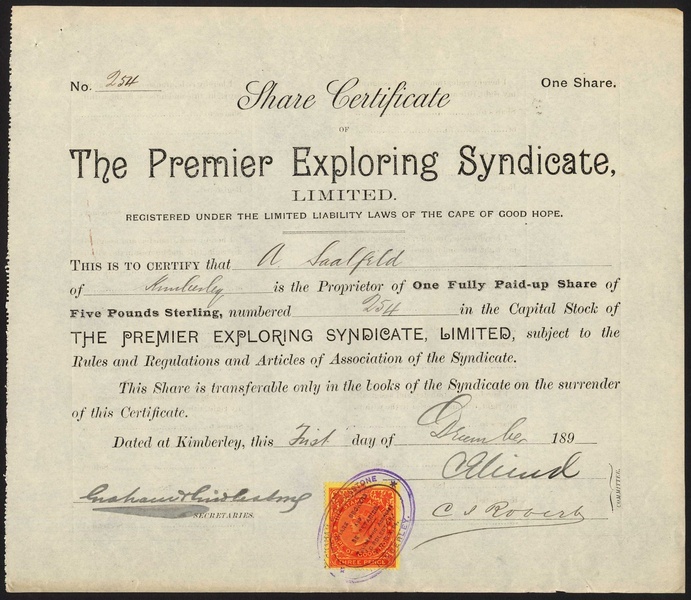 No. 254
One Share.
Share Certificate
OF
The Premier Exploring Syndicate,
LIMITED.
REGISTERED UNDER THE LIMITED LIABILITY LAWS OF THE CAPE OF GOOD HOPE.
THIS IS TO CERTIFY that A Saalfeld
of Kimberley is the Proprietor of One Fully Paid-up Share of
Five Pounds Sterling, numbered 254 in the Capital Stock of
THE PREMIER EXPLORING SYNDICATE, LIMITED, subject to the
Rules and Regulations and Articles of Association of the Syndicate.
This Share is transferable only in the books of the Syndicate on the surrender
of this Certificate.
Dated at Kimberley, this First day of December 189
C S Roberts
SECRETARIES.
COMMITTEE.
THREE PENCE